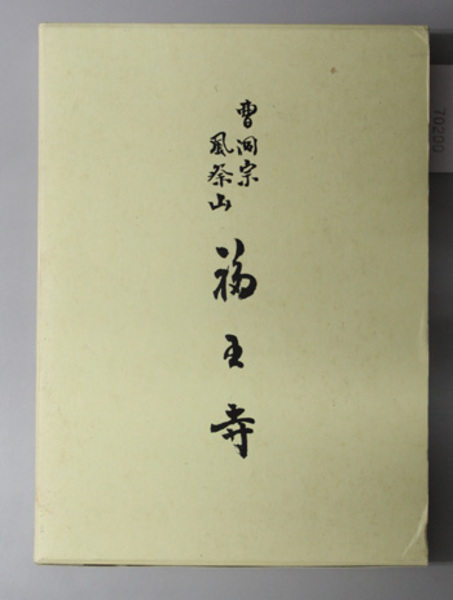 曹洞宗
風祭山
福王寺
70200